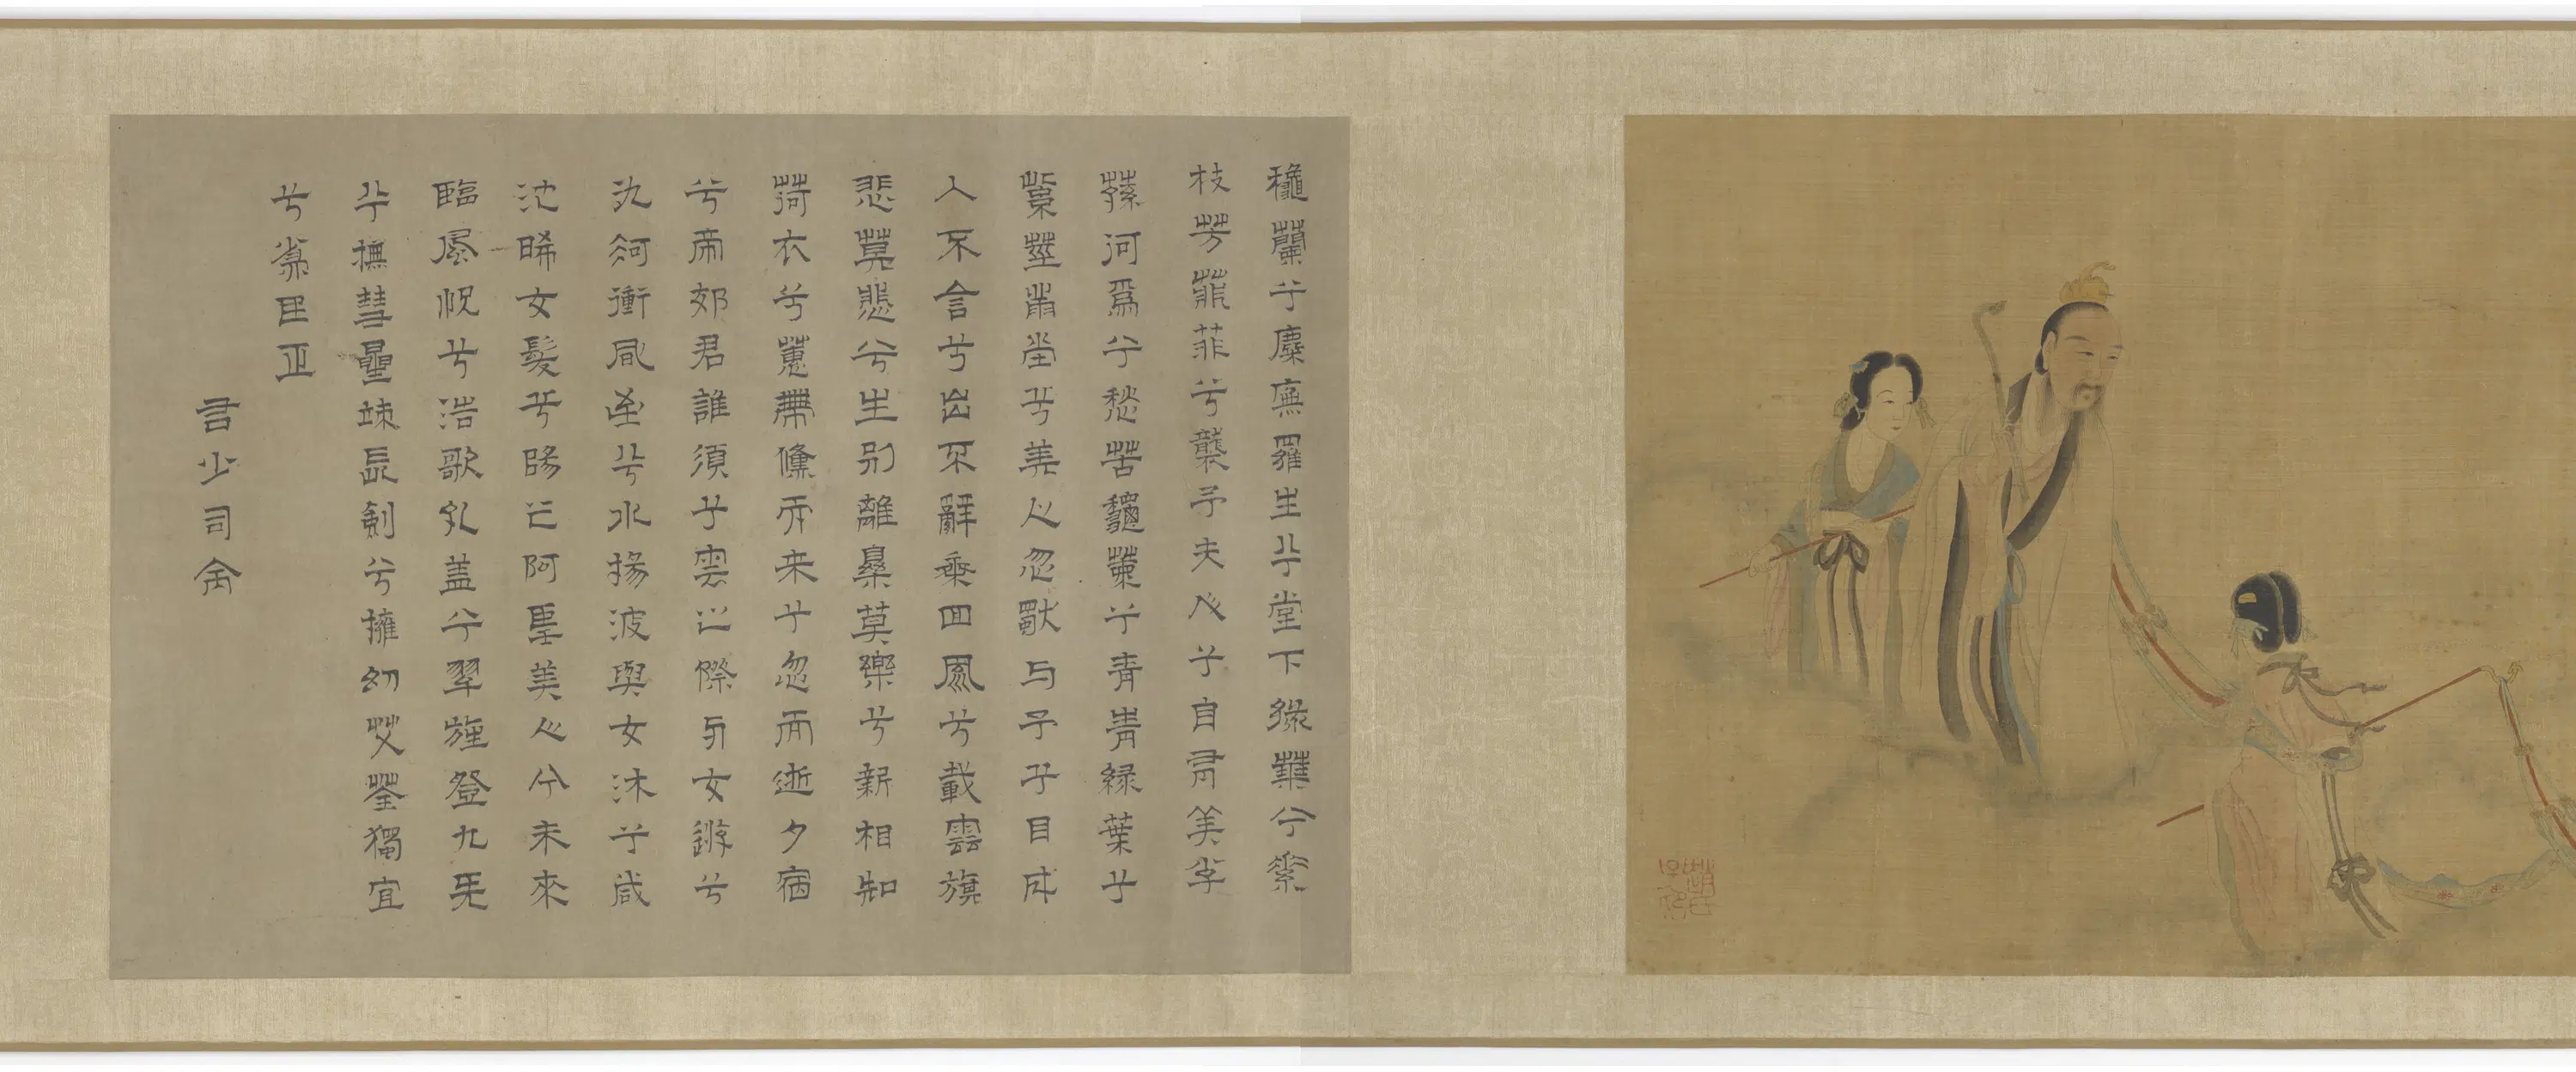 穐蘭兮麋蕪羅生兮堂下綠葉兮素
枝芳菲菲兮襲予夫人兮自有美子
蓀何爲兮愁苦龝蘭兮青青綠葉兮
紫莖滿堂兮美人忽獨与予兮目成
入不言兮出不辭乘回風兮載雲旗
悲莫悲兮生別離樂莫樂兮新相知
荷衣兮蕙帶儵而来兮忽而逝夕宿
兮帝郊君誰須兮雲之際与女遊兮
九河衝風至兮水揚波與女沐兮咸
池晞女髮兮陽之阿望美人兮未來
臨風怳兮浩歌孔蓋兮翠旌登九天
兮撫彗星竦長劍兮擁幼艾荃獨宜
兮爲民正
右少司命
趙氏子昂